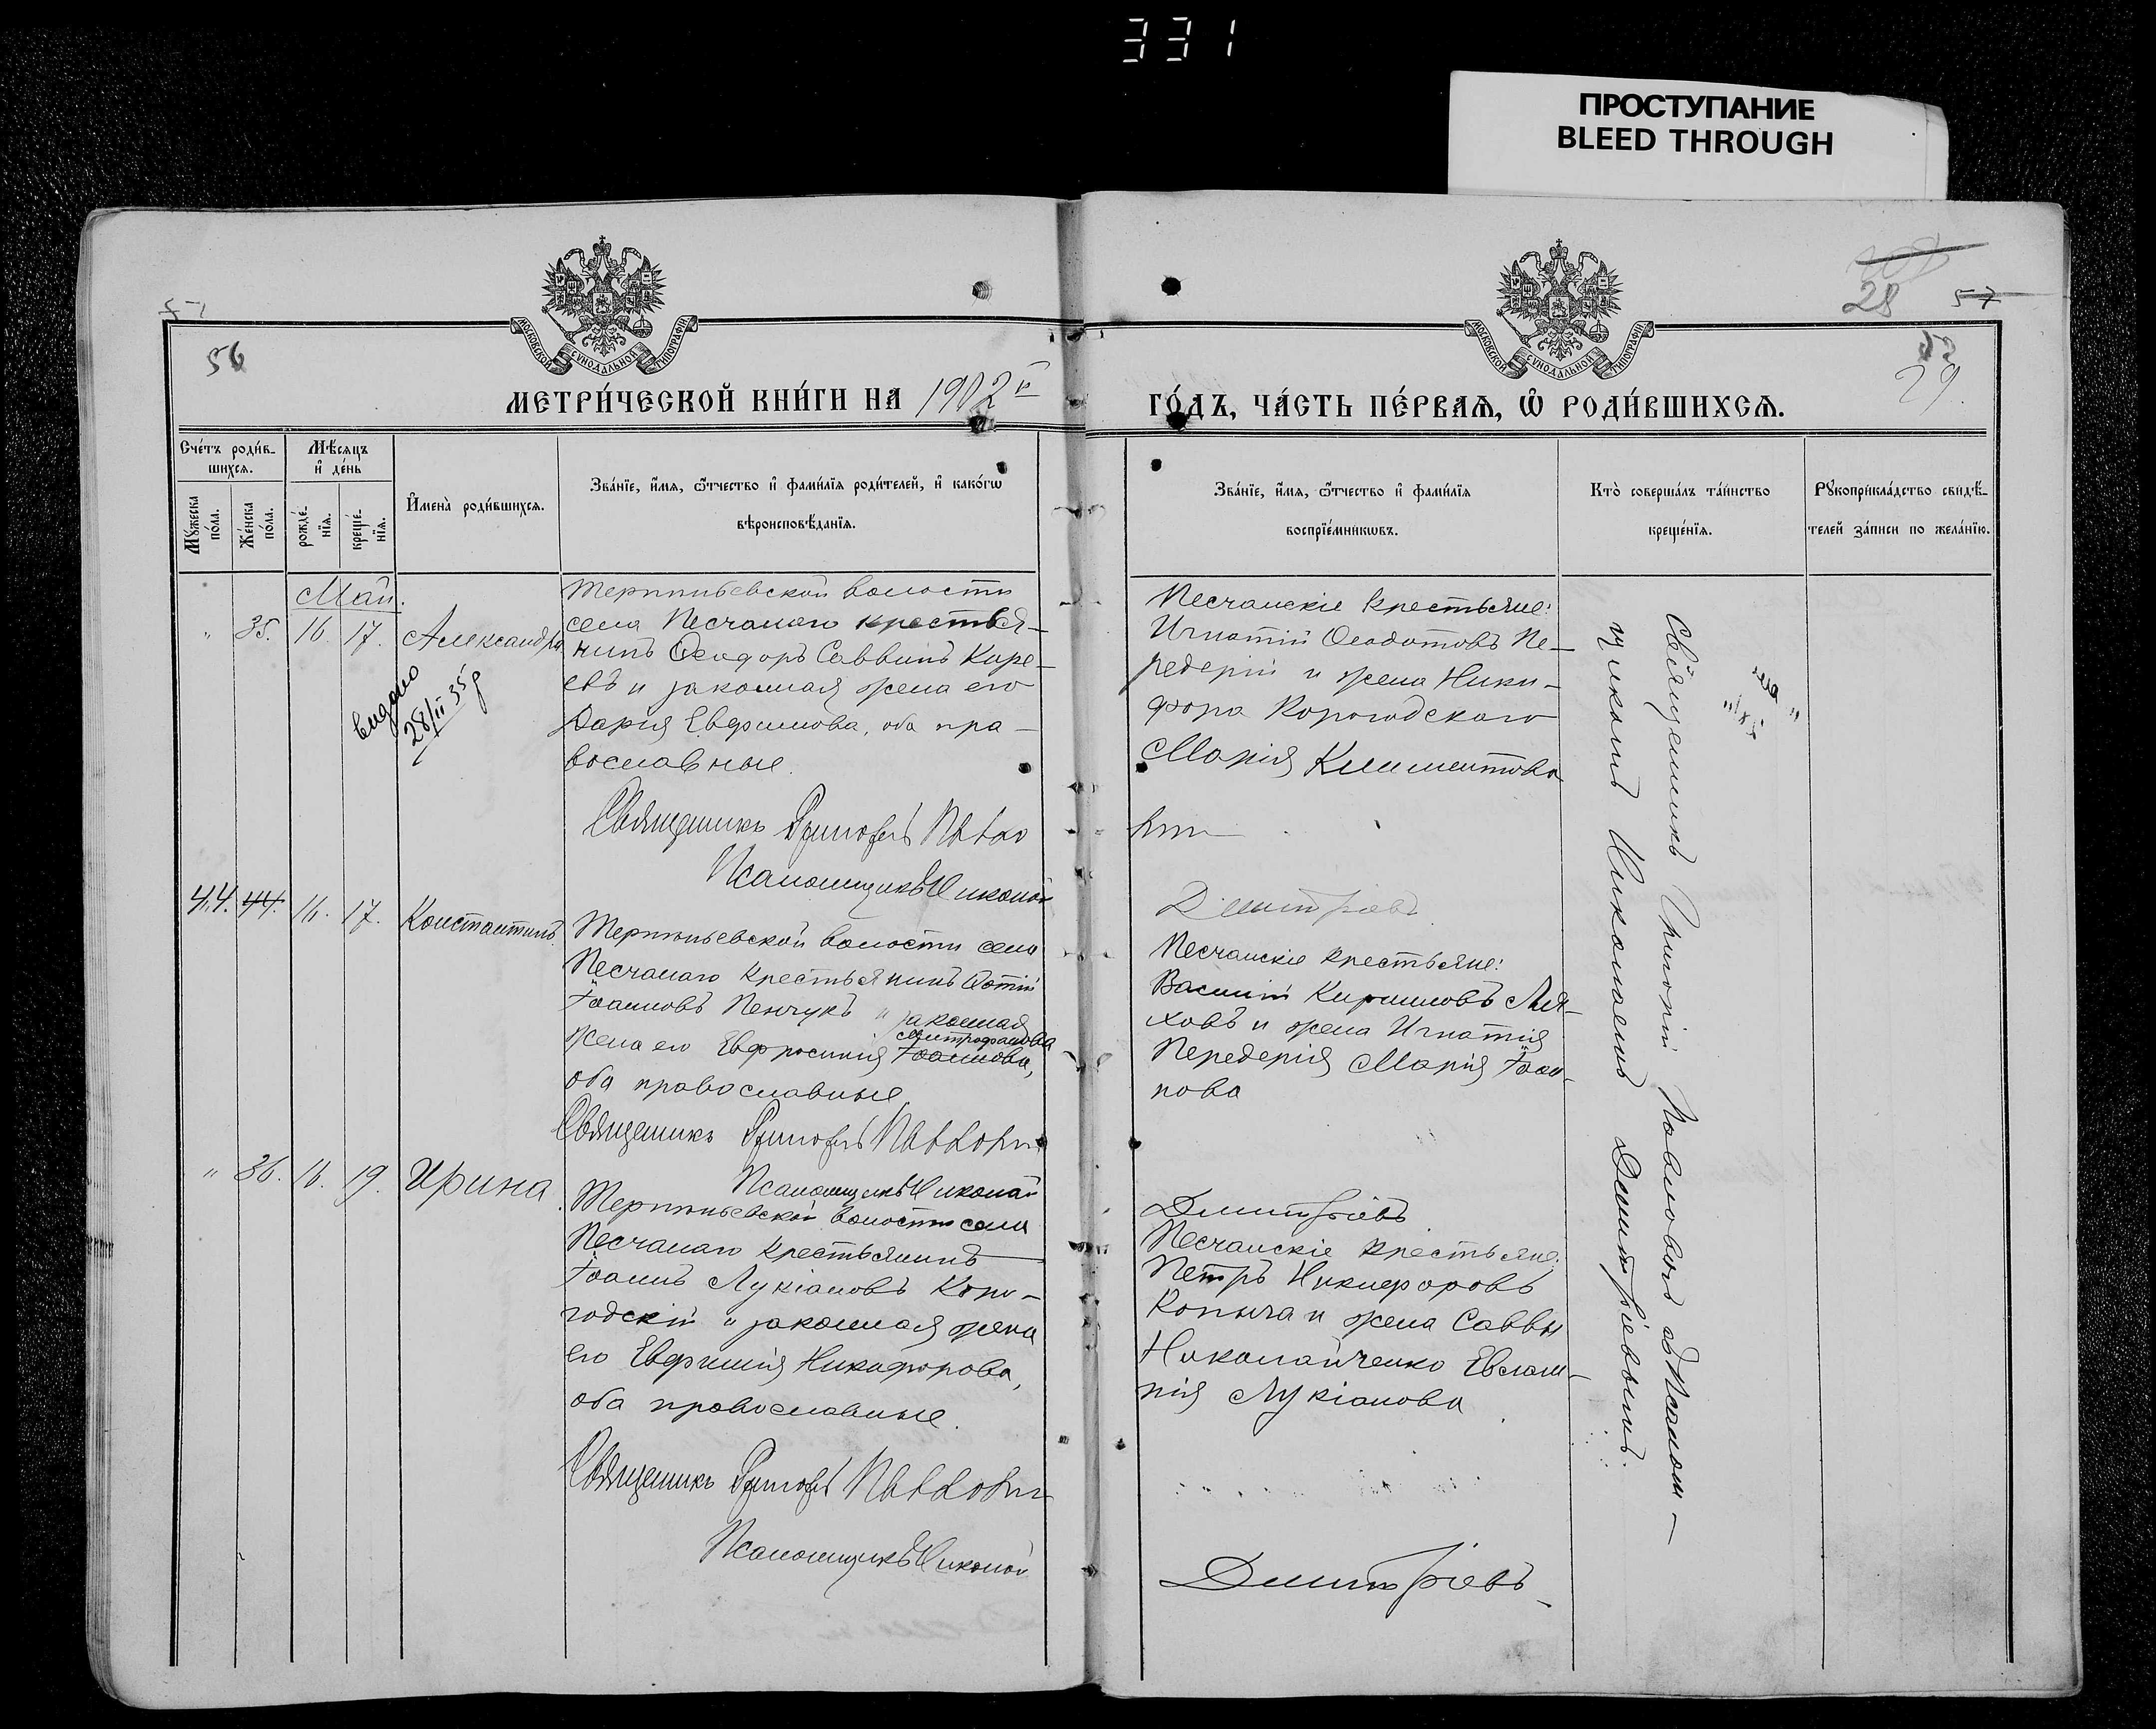 331
ПРОСТУПАНИЕ
BLEED THROUGH
МОСКОВСКОЙ СѴНОДАЛЬНОЙ ТИПОГРАФІИ
МОСКОВСКОЙ СѴНОДАЛЬНОЙ ТИПОГРАФІИ
28 57
56
29
МЕТРИ́ЧЕСКОЙ КНИ́ГИ НА 1902 й
ГО́ДЪ, ЧА́СТЬ ПЕ́РВАѦ, Ѡ҆ РОДИ́ВШИХСѦ.
Сче́тъ роди́в-
шихсѧ.
Мꙋ́жеска по́ла.
Же́нска по́ла.
Мѣ́сѧцъ
и҆ де́нь
рожде́-
нїѧ.
креще́-
нїѧ.
И҆мена̀ роди́вшихсѧ.
Зва́нїе, и҆́мѧ, ѻ҆́тчество и҆ фами́лїѧ роди́телей, и҆ како́гѡ
вѣроисповѣ́данїѧ.
Зва́нїе, и҆́мѧ, ѻ҆́тчество и҆ фами́лїѧ
воспрїе́мникѡвъ.
Кто̀ соверша́лъ та́инство
креще́нїѧ.
Рꙋкоприкла́дство свидѣ́-
телей за́писи по жела́нїю.
Май.
" 35. 16. 17. Александра
видано
28/II 35 р
Терпѣньевской волости
села Песчанаго крестья-
нинъ Ѳеодоръ Саввинъ Каре-
евъ и законная жена его
Дарія Евфимова, оба пра-
вославные.
Священникъ Григорій Павло
Псаломщикъ Николай
Песчанскіе крестьяне:
Игнатій Ѳеодотовъ Пе-
редерій и жена Ники-
фора Корогодскаго
Марія Климентова
вич
Димитріевъ
44. 44. 16. 17. Константинъ
Терпѣньевской волости села
Песчанаго крестьянинъ Фотій
Іоанновъ Пенчукъ и законная
Митрофанова
жена его Евфросинія Іоаннова,
оба православные
Священникъ Григорій Павлович
Псаломщикъ Николай
Песчанскіе крестьяне:
Василій Кирилловъ Ля-
ховъ и жена Игнатія
Передерія Марія Іоан-
нова
Димитріевъ
" 36. 16. 19. Ирина
Терпѣньевской волости села
Песчанаго крестьянинъ
Іоаннъ Лукіановъ Коро-
годскій и законная жена
его Евфимія Никифорова,
оба православные.
Священникъ Григорій Павлович
Псаломщикъ Николай
Песчанскіе крестьяне:
Петръ Никифоровъ
Копыча и жена Саввы
Николайченко Евлам-
пія Лукіанова
Димитріевъ
Священникъ Григорій Павловичъ съ Псалом-
щикомъ Николаемъ Димитріевымъ.